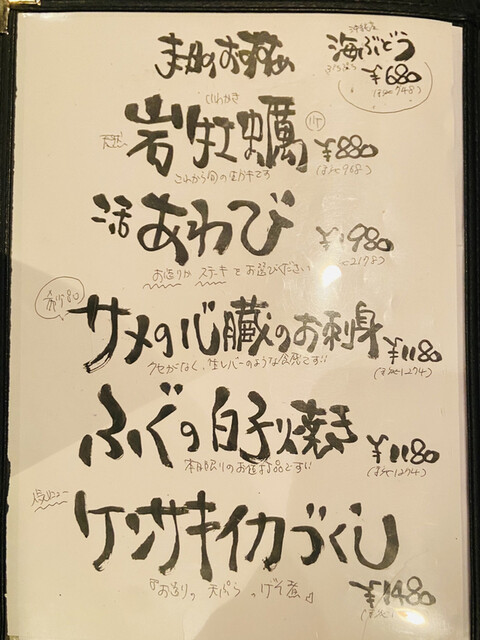 本日のおすすめ
沖縄産
海ぶどう
¥680
(税込748)
いわがき
天然
岩牡蠣
¥880
(税込968)
これから旬の生ガキです
活あわび
¥1980
2178)
お造りかステーキでお選びください
サメの心臓のお刺身
¥1180
(税込1274)
クセがなく、生レバーのような食感です!!
ふぐの白子焼き
¥1180
(税込1274)
本日限りのお値打品です!!
人気メニュー
ケンサキイカづくし
¥1480
『お造り。天ぷら。ゲソ煮』